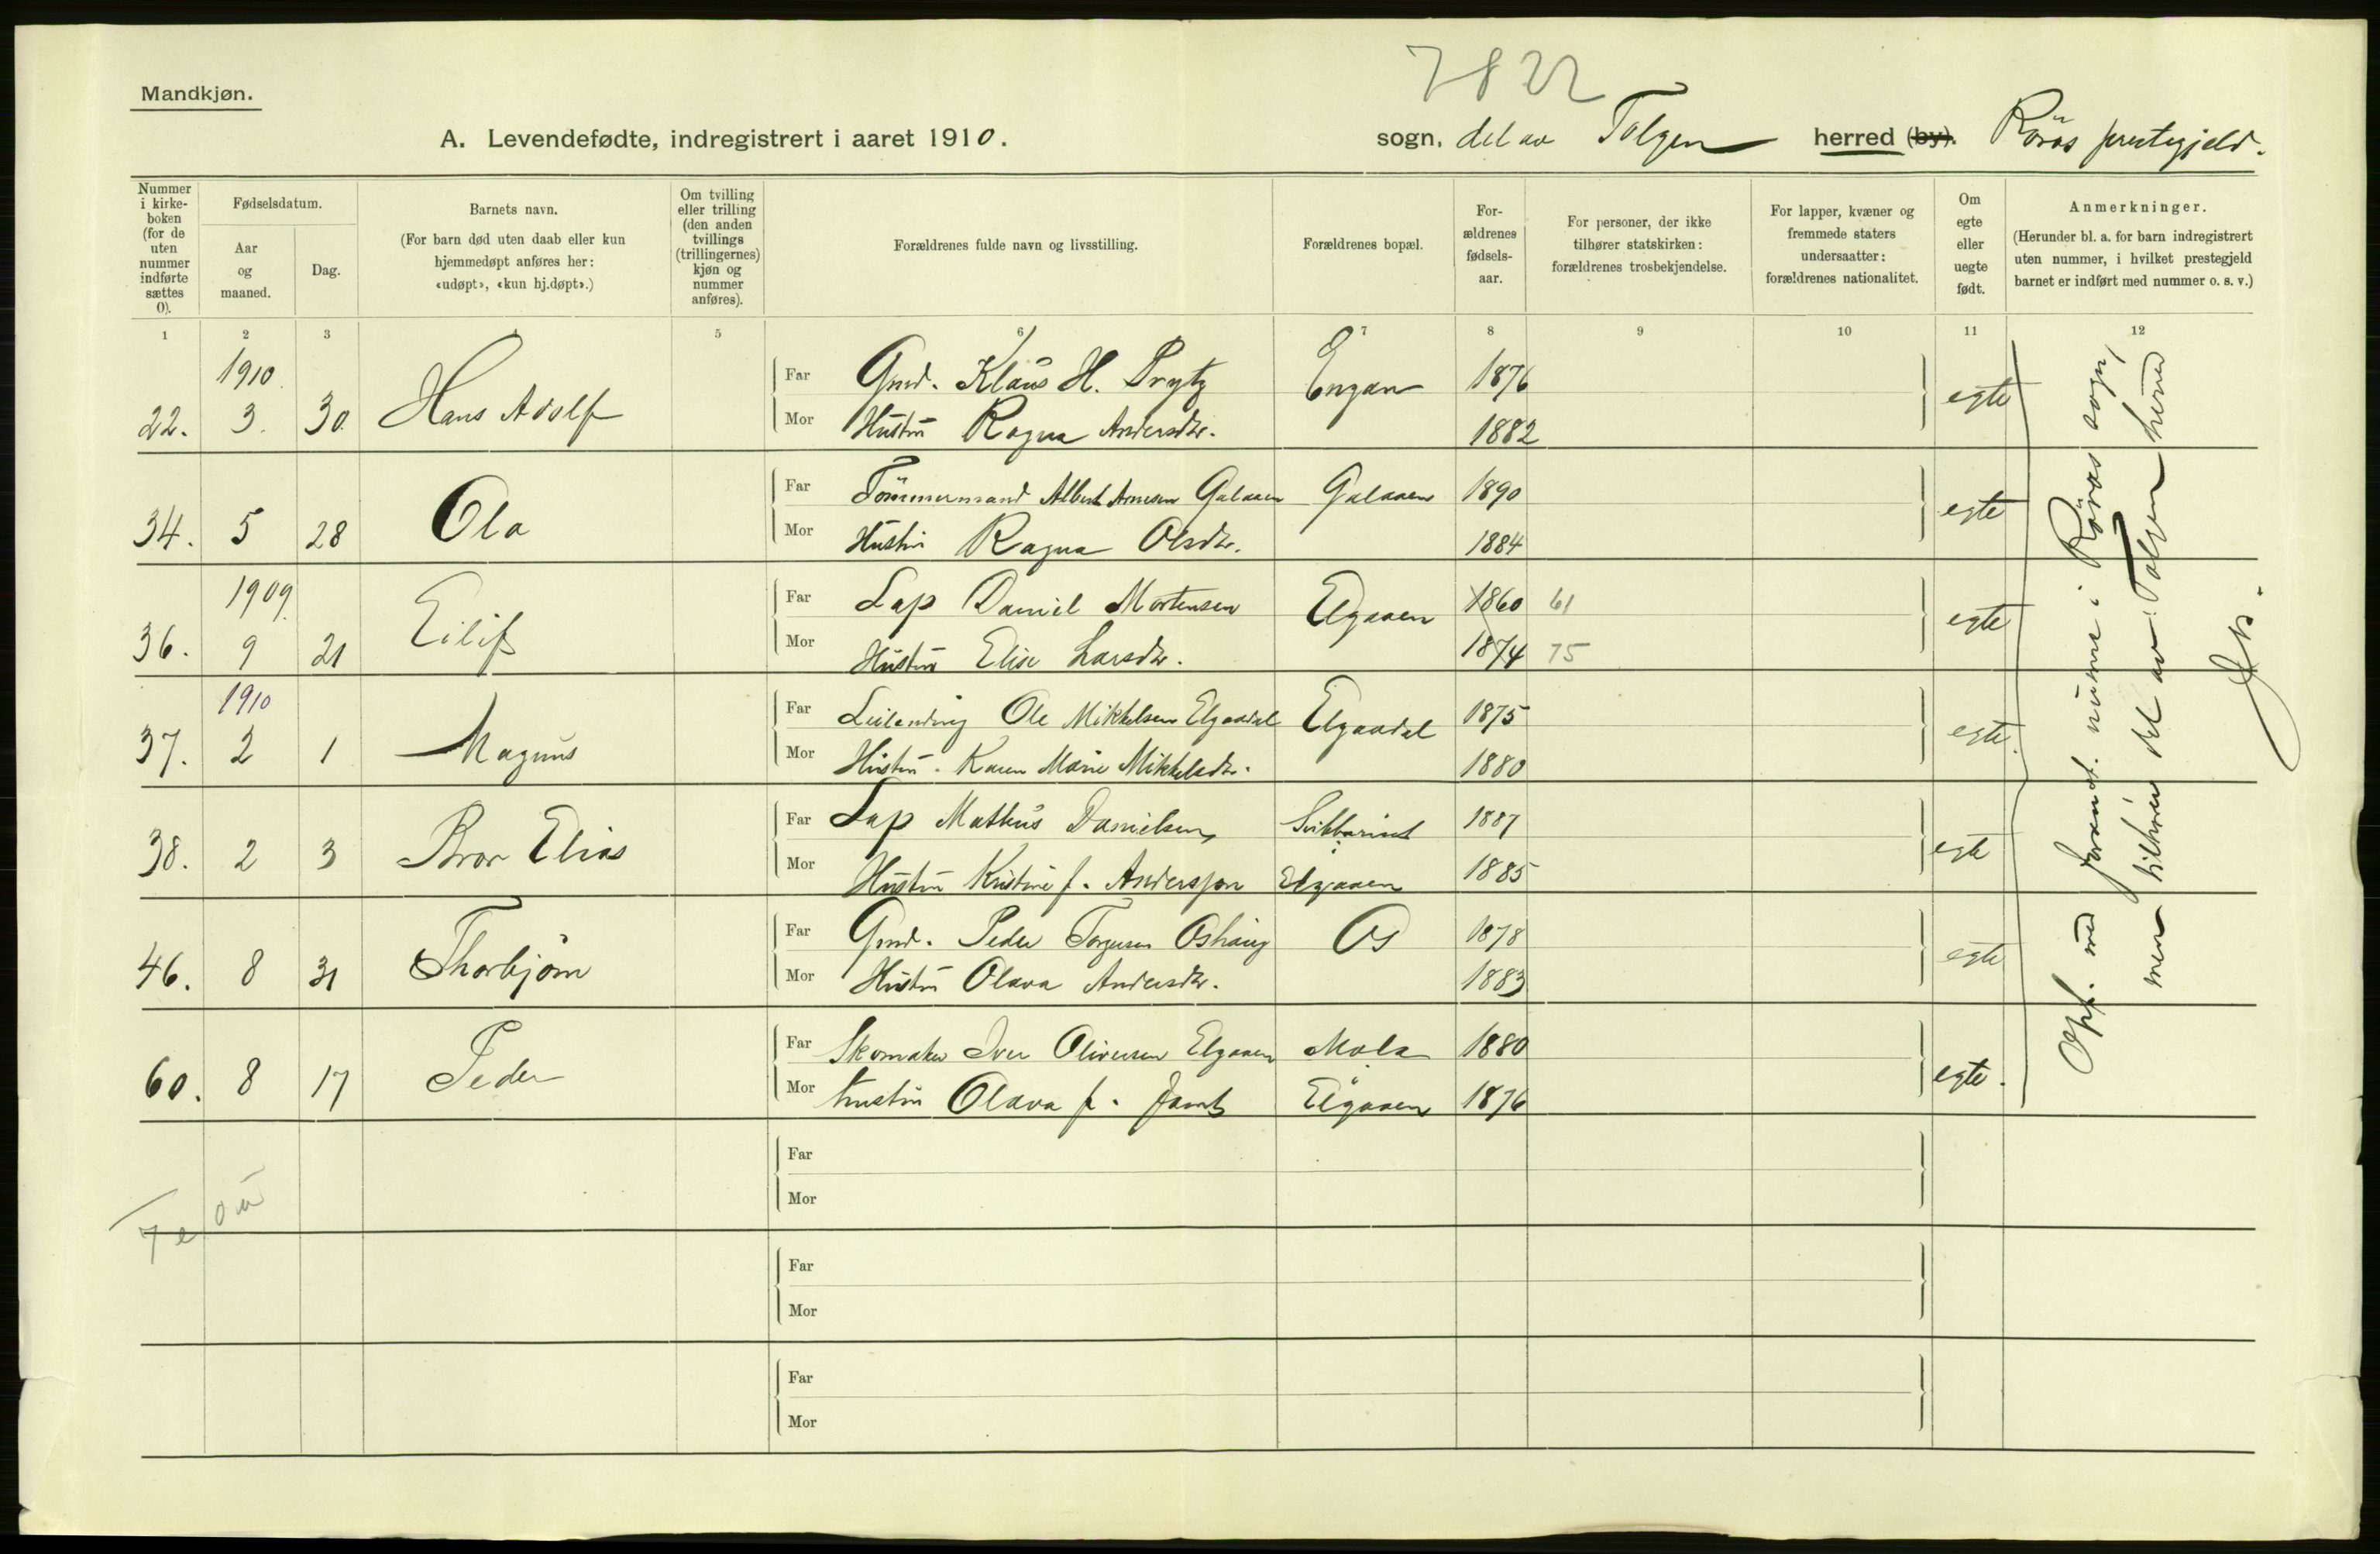 7822
Mandkjøn.
A. Levendefødte, indregistrert i aaret 1910.
sogn, del av Tolgen herred (by). Röros prestegjeld.
Nummer i kirke-boken (for de uten nummer indførte sættes 0).
Fødselsdatum.
Aar og maaned.
Dag.
Barnets navn.
(For barn død uten daab eller kun hjemmedøpt anføres her: «udøpt», «kun hj.døpt».)
Om tvilling eller trilling (den anden tvillings (trillingernes) kjøn og nummer anføres).
Forældrenes fulde navn og livsstilling.
Forældrenes bopæl.
For-ældrenes fødsels-aar.
For personer, der ikke tilhører statskirken: forældrenes trosbekjendelse.
For lapper, kvæner og fremmede staters undersaatter: forældrenes nationalitet.
Om egte eller uegte født.
Anmerkninger.
(Herunder bl. a. for barn indregistrert uten nummer, i hvilket prestegjeld barnet er indført med nummer o. s. v.)
1 2 3 5 6 7 8 9 10 11 12
1910
22. 3. 30. Hans Adolf
Far Gmd. Klaus H. Prytz Engan 1876 egte
Mor Hustru Ragna Andersdtr. 1882
34. 5 28 Ola
Far Tömmermand Albert Arnesen Galaaen Galaaen 1890 egte
Mor Hustru Ragna Olsdtr. 1884
1909
36. 9 21 Eilif
Far Lap Daniel Mortensen Elgaaen 1860 61 egte
Mor Hustru Elise Larsdtr. 1874 75
1910
37. 2 1 Magnus
Far Leilending Ole Mikkelsen Elgaadal Elgaadal 1875 egte.
Mor Hustru. Karen Marie Mikkelsdtr. 1880
38. 2 3 Bror Elias
Far Lap Mathus Danielsen 1887 egte
Mor Hustru Kristine f. Andersson Elgaaen 1885
46. 8 31 Thorbjörn
Far Gmd. Peder Torgersen Oshaug Os 1878 egte
Mor Hustru Olava Andersdtr. 1883
60. 8 17 Peder
Far Skomaker Iver Oliversen Elgaaen Mola 1880 egte.
Mor Hustru Olava f. Elgaaen 1876
Opf. med forandt. numre i Röros sogn,
men tilhörer del av Tolgen herred
Far
Mor
7 e 0 u
Far
Mor
Far
Mor